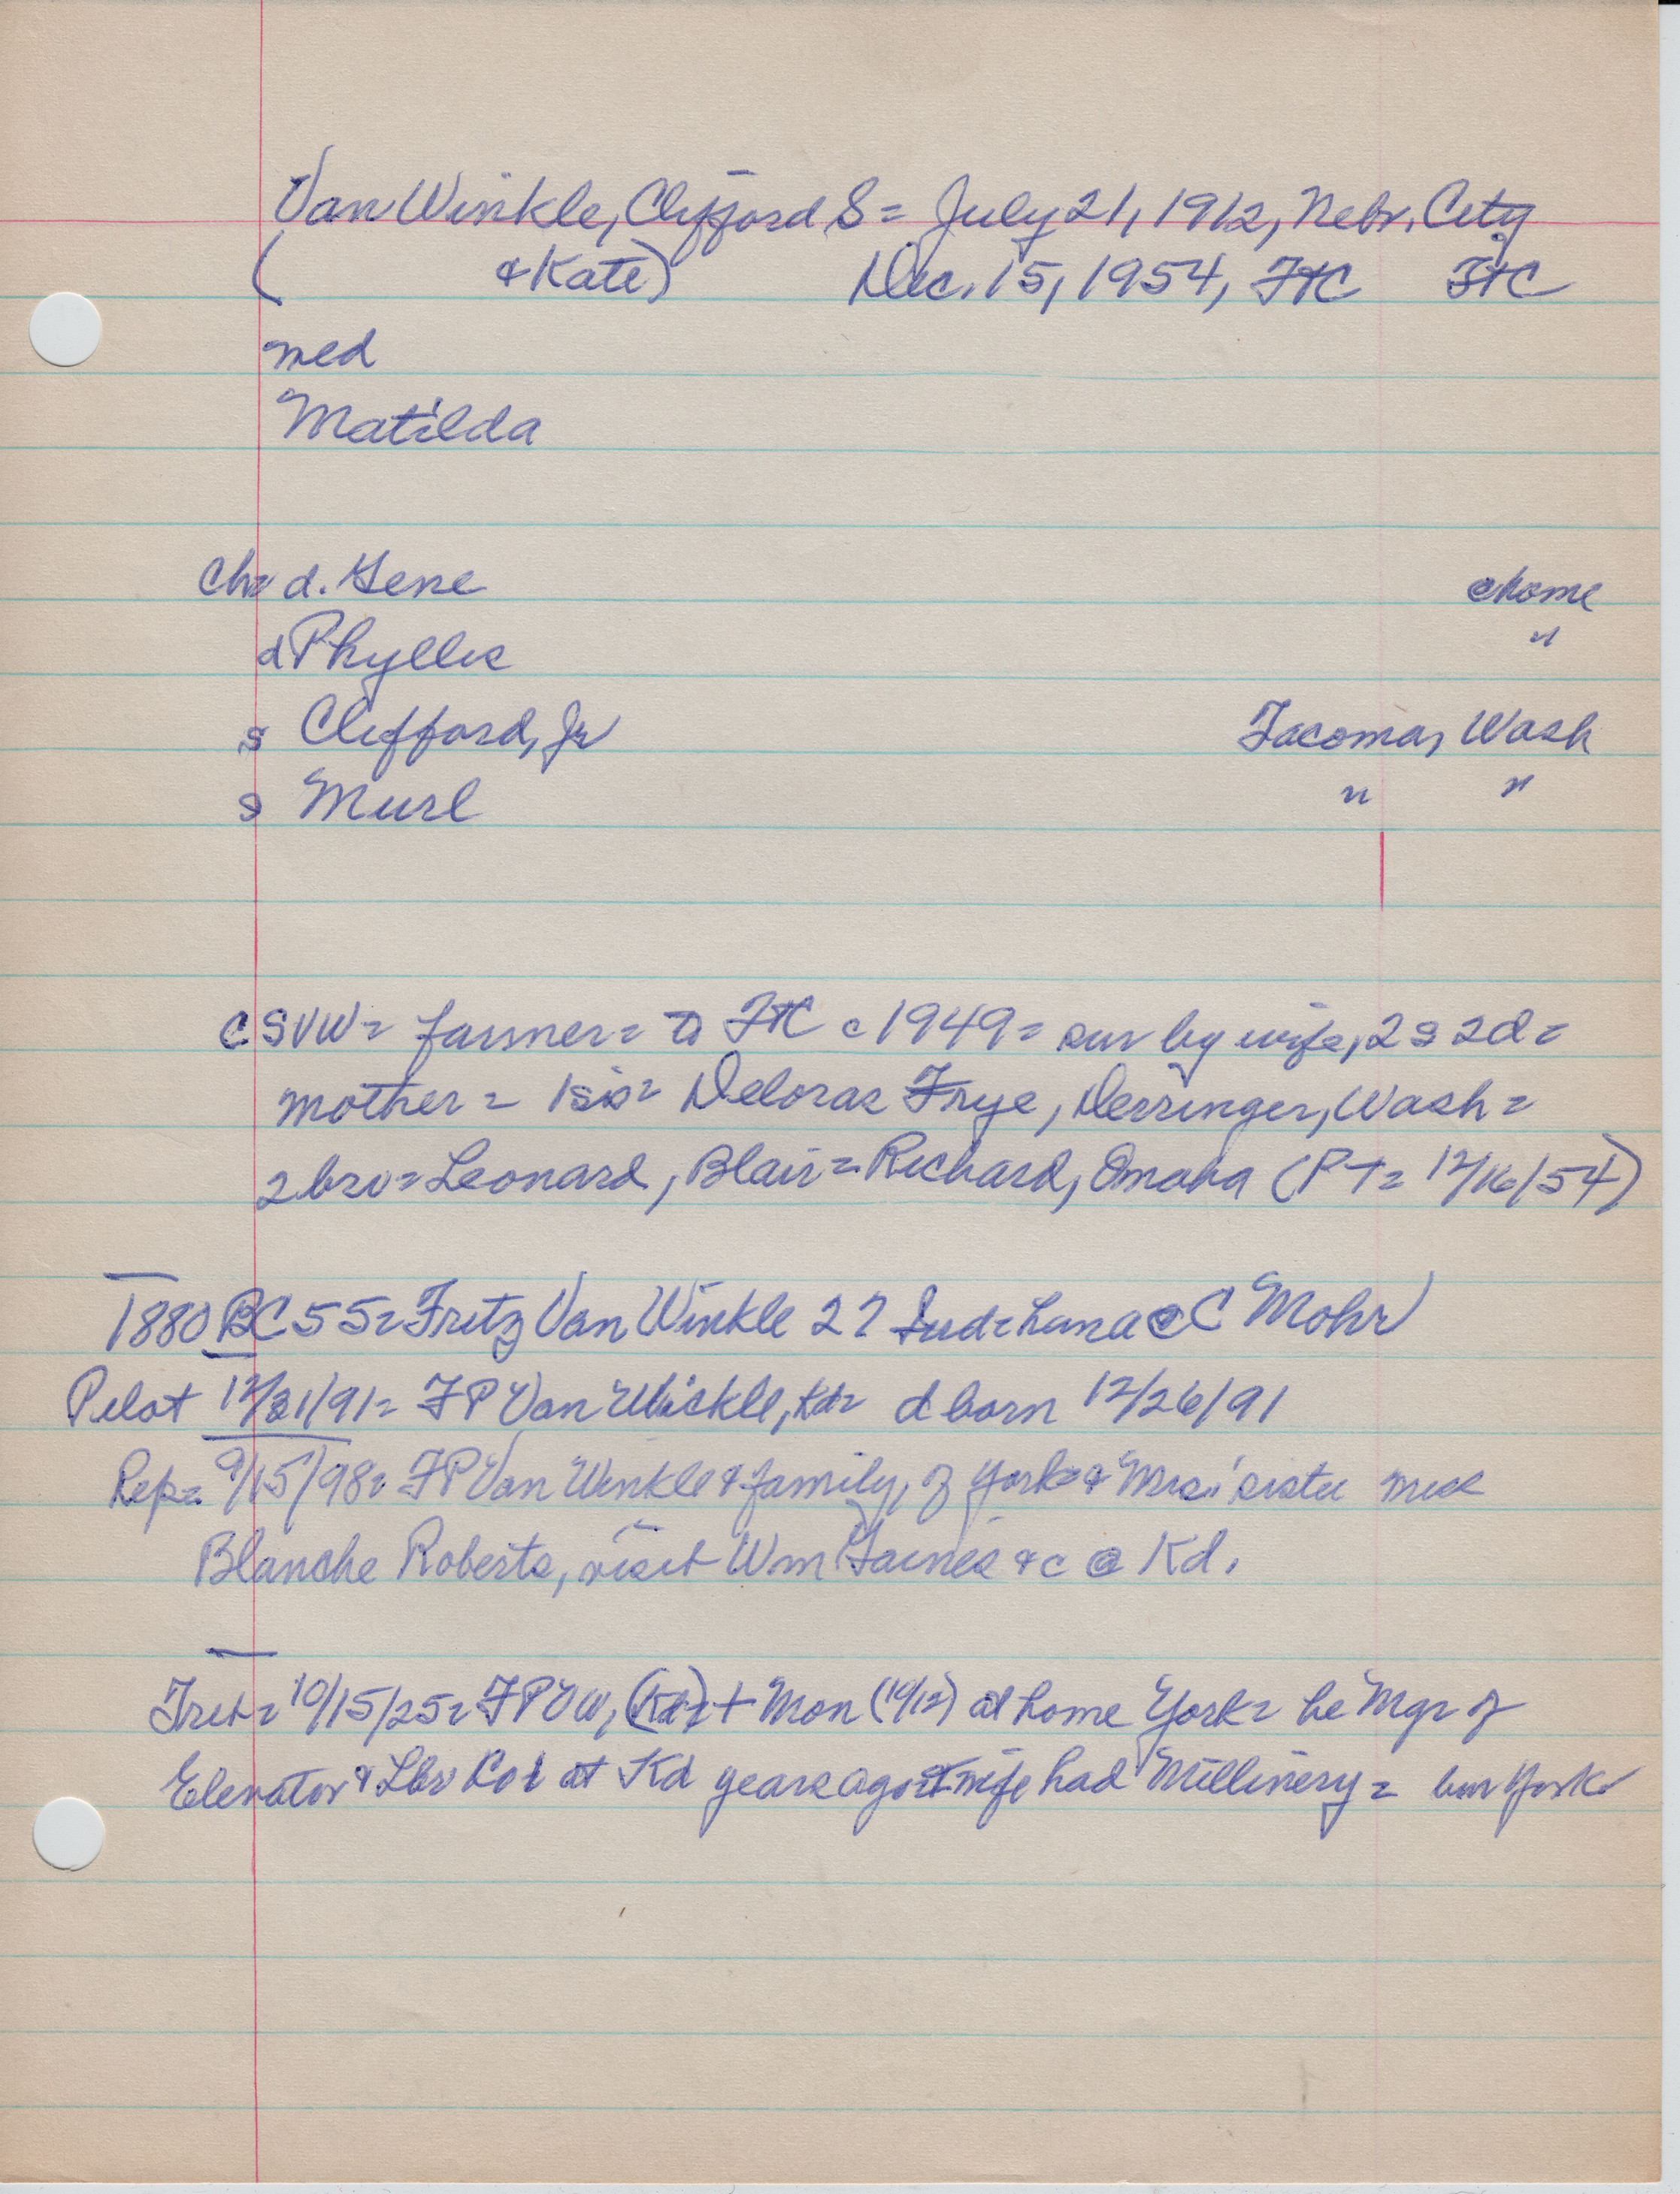 Van Winkle, Clifford S = July 21, 1912, Nebr. City
( & Kate) Dec. 15, 1954, FtC FtC
med
Matilda
Ch= d. Gene @home
d Phyllis "
s Clifford, Jr Tacoma, Wash
s Murl " "
CSVW= farmer= to FtC c 1949= sur by wife, 2 s 2d=
mother = 1 sis= Deloras Frye, Derringer, Wash =
2 bro= Leonard, Blair = Richard, Omaha (PT= 12/16/54)
1880 BC 55= Fritz Van Winkle 27 Ind= Lana @ C Mohr
Pilot 12/31/91= FP Van Winkle, Kd= d born 12/26/91
Rep= 9/15/98= FP Van Winkle & family, of York= & Mrs' sister Miss
Blanche Roberts, visit Wm Gaines &c @ Kd.
10/15/25= FPVW, (Kd)= + Mon (10/12) at home York= he Mgr of
Elevator & Lbr Co at Kd years ago= wife had Millinery = bur York